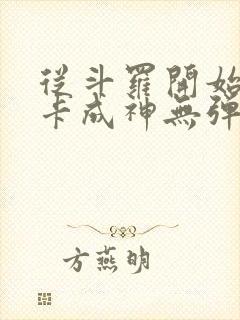 從斗羅開始
卡成神無彈
方燕明